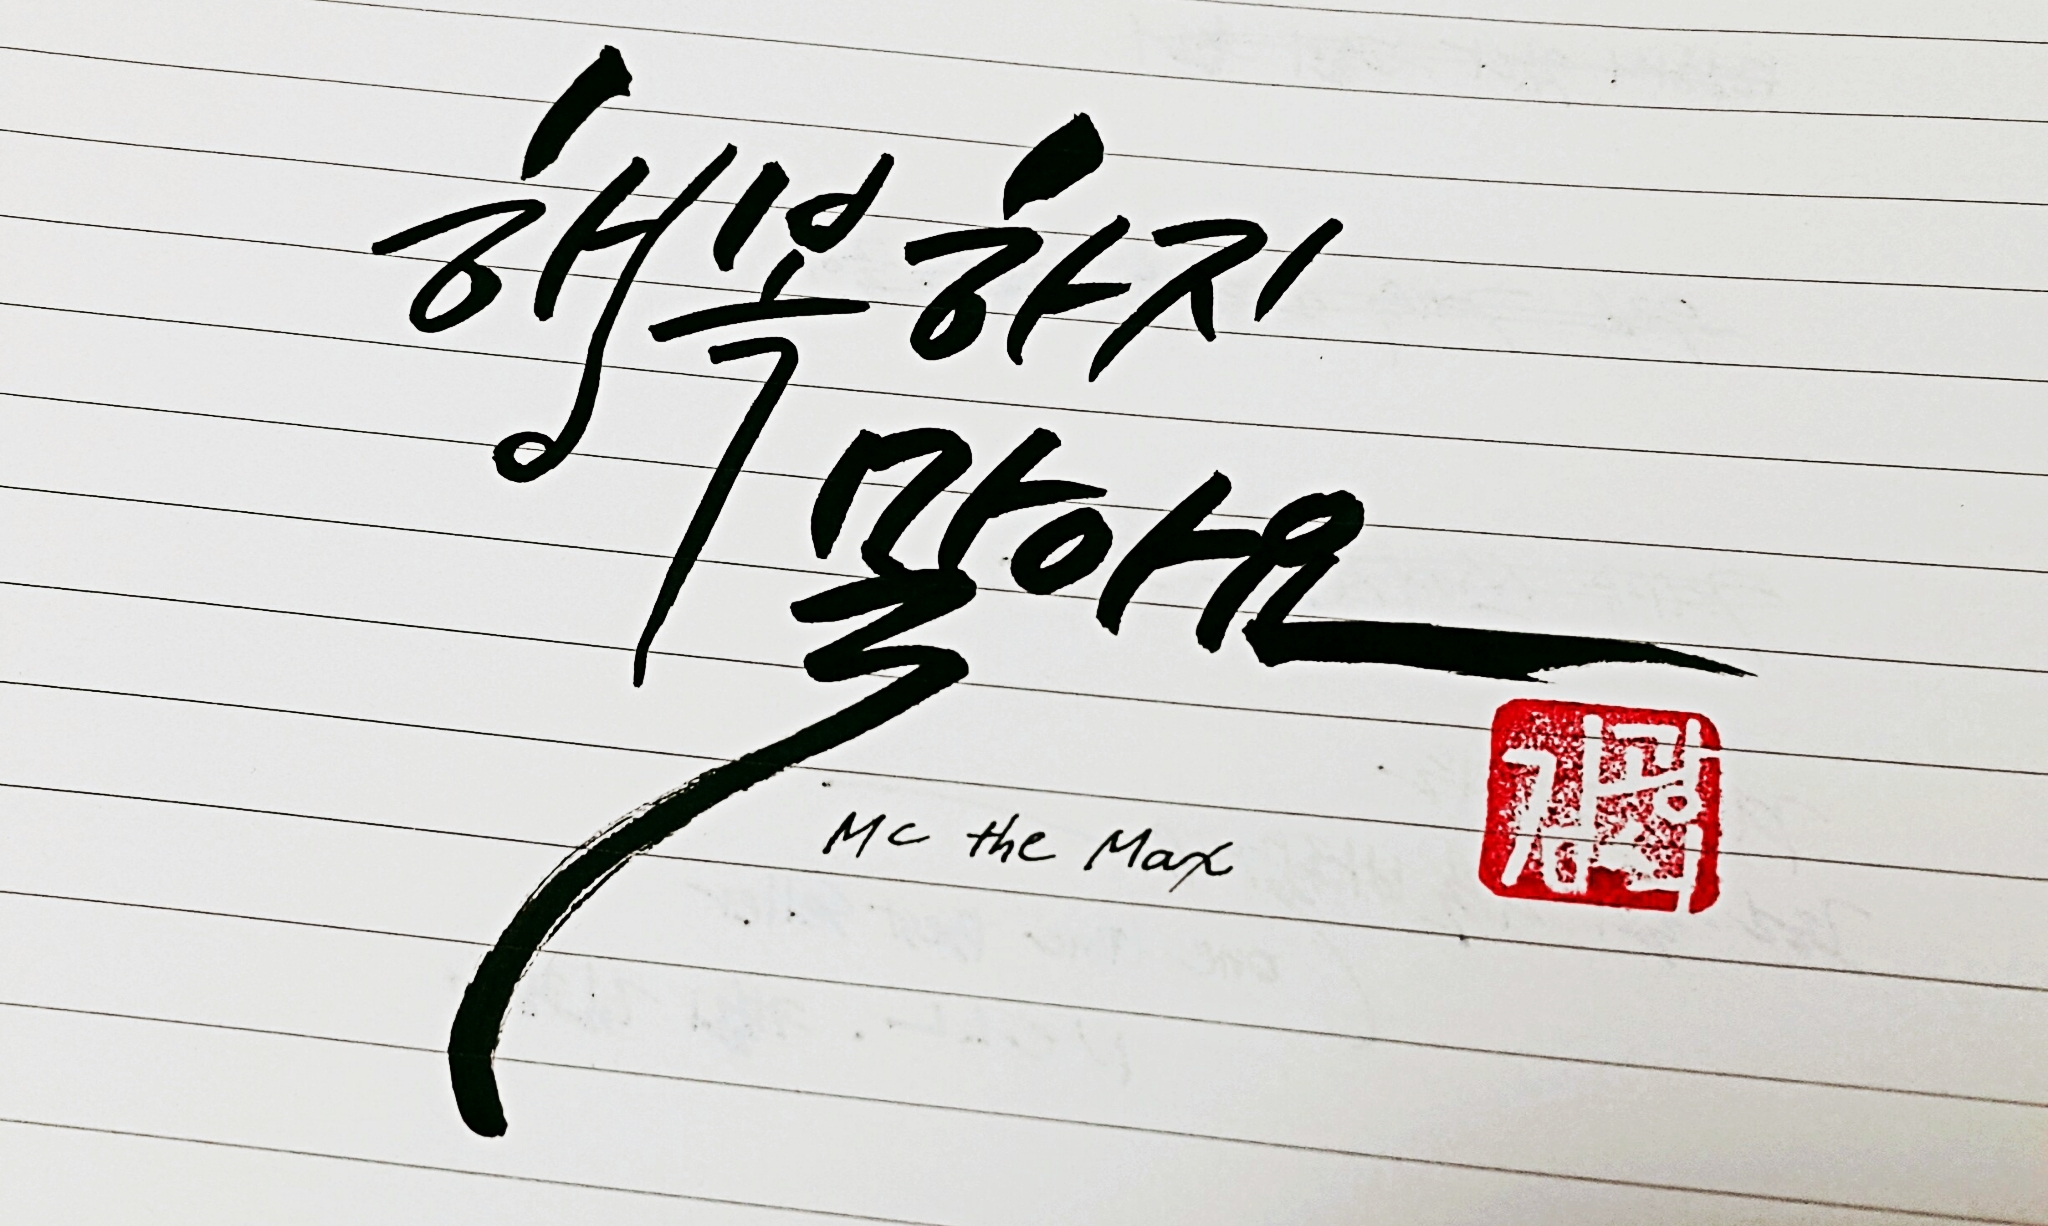 행복하지
말아요
Mc the Max